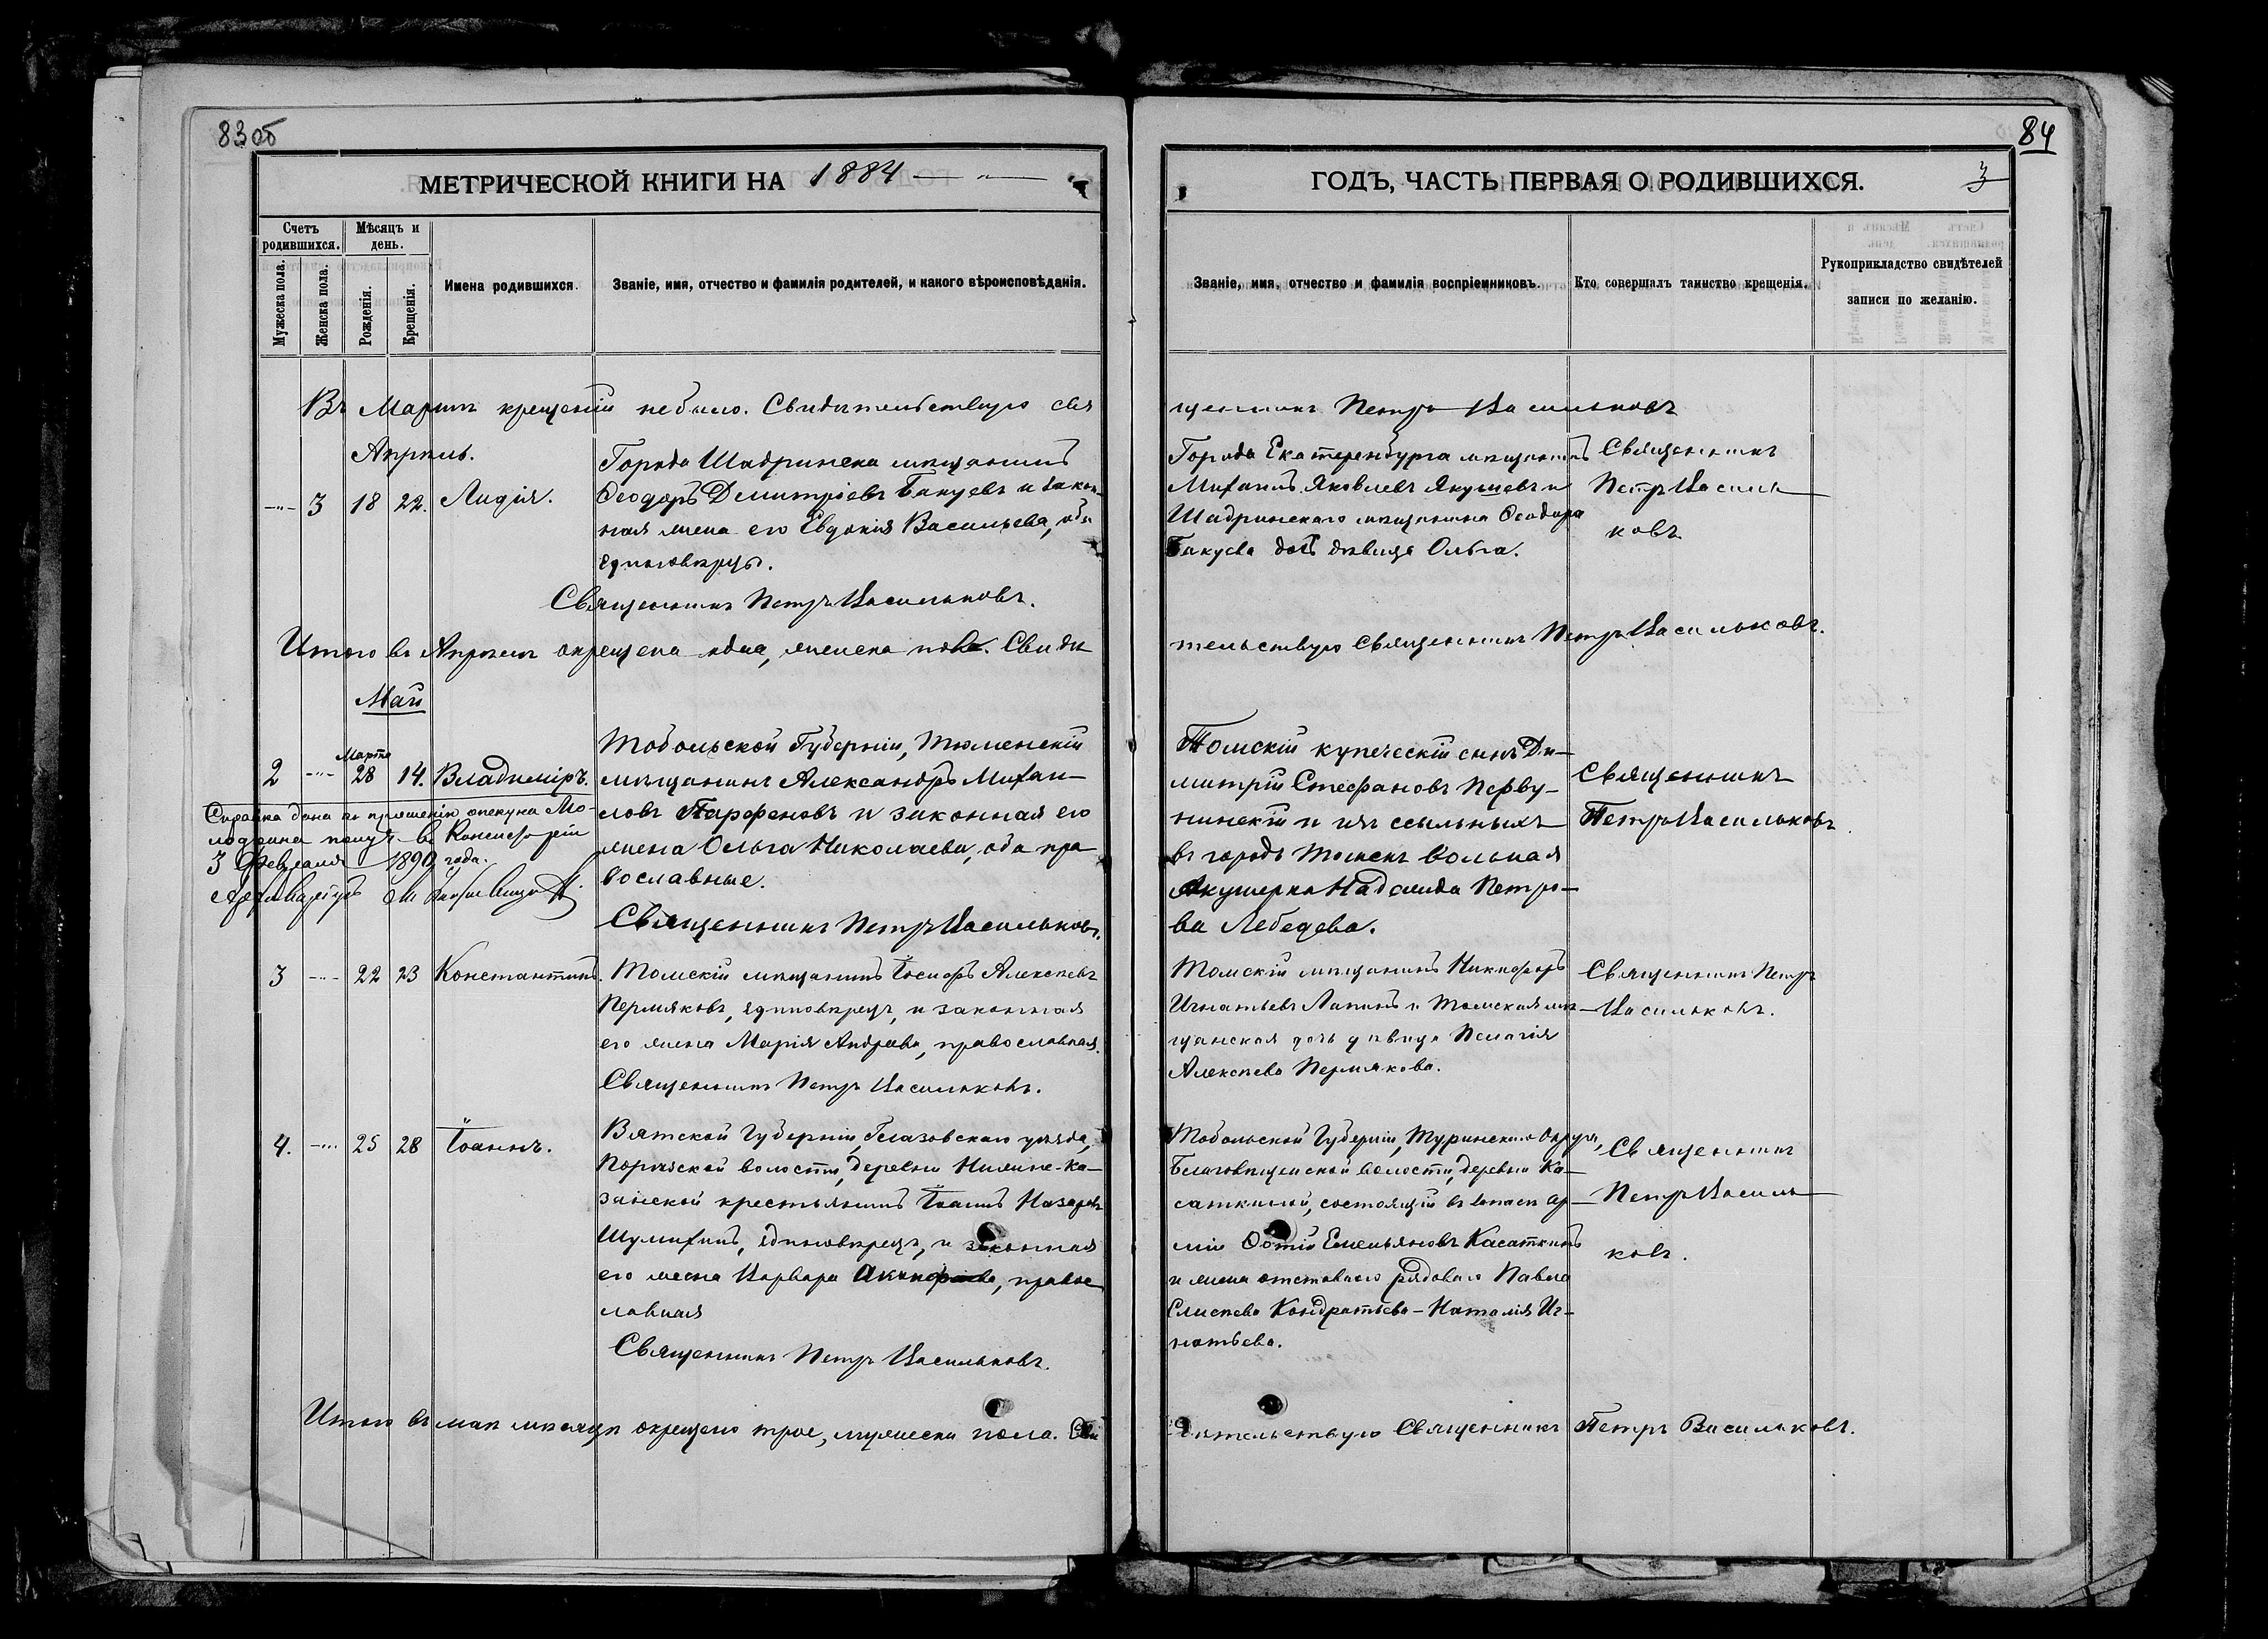 83 об
МЕТРИЧЕСКОЙ КНИГИ НА 1884
Счетъ родившихся.
Мѣсяцъ и день.
Мужеска пола.
Женска пола.
Рожденія.
Крещенія.
Имена родившихся.
Званіе, имя, отчество и фамилія родителей, и какого вѣроисповѣданія.
Въ Мартѣ крещеній небыло. Свидѣтельствую свя
Апрѣль.
3 18 22. Лидія.
Города Шадринска мѣщанинъ
Ѳеодоръ Димитріевъ Бакуевъ и закон-
ная жена его Евдокія Васильева, оба
единовѣрцы.
Священникъ Петръ Васильковъ.
Итого въ Апрѣлѣ окрещена одна, женска пола. Свидѣ
Май
2 Марта 28 14. Владиміръ.
Тобольской Губерніи, Тюменскій
мѣщанинъ Александръ Михаи-
ловъ Парфеновъ и законная его
жена Ольга Николаева, оба пра
вославные.
Священникъ Петръ Васильковъ.
Справка дана по прошенію опекуна Мо-
въ Консисторіи
3 Февраля 1890 года.
3 22 23 Константинъ.
Томскій мѣщанинъ Іосифъ Алексѣевъ
Пермяковъ, единовѣрецъ, и законная
его жена Марія Андреева, православная.
Священникъ Петръ Васильковъ.
4. 25 28 Іоаннъ.
Вятской Губерніи, Глазовскаго уѣзда,
волости, деревни Нижне-Ка-
занской крестьянинъ Іоаннъ Назаровъ
Шумихинъ, единовѣрецъ, и законная
его жена Варвара, правос
лавная
Священникъ Петръ Васильковъ.
Итого въ маѣ мѣсяцѣ окрещено трое, мужеска пола. Сви
84
ГОДЪ, ЧАСТЬ ПЕРВАЯ О РОДИВШИХСЯ.
3
Званіе, имя, отчество и фамилія воспріемниковъ.
Кто совершалъ таинство крещенія.
Рукоприкладство свидѣтелей записи по желанію.
щенникъ Петръ Васильковъ
Города Екатеренбурга мѣщанинъ
Михаилъ Яковлевъ Якушевъ и
Шадринскаго мѣщанина Ѳеодора
Бакуева дочь дѣвица Ольга.
Священникъ
Петръ Василь
ковъ
тельствую Священникъ Петръ Васильковъ.
Томскій купеческій сынъ Ди-
митрій Стефановъ Перву-
нинскій и изъ ссыльныхъ
въ городѣ Томскѣ вольная
Акушерка Надежда Петро-
ва Лебедева.
Священникъ
Петръ Васильковъ.
Томскій мѣщанинъ Никифоръ
Игнатьевъ Лапинъ и Томская мѣ-
щанская дочь дѣвица Пелагія
Алексѣева Пермякова.
Священникъ Петръ
Васильковъ.
Тобольской Губерніи, Туринскаго Округа,
Благовѣщенской волости, деревни Ка-
саткиной, состоящій въ запасѣ ар-
міи Фотій Емельяновъ Касаткинъ
и жена отставнаго рядоваго Павла
Елисѣева Кондратьева - Наталія Иг-
натьева.
Священникъ
Петръ Василь
ковъ.
дѣтельствую Священникъ Петръ Васильковъ.